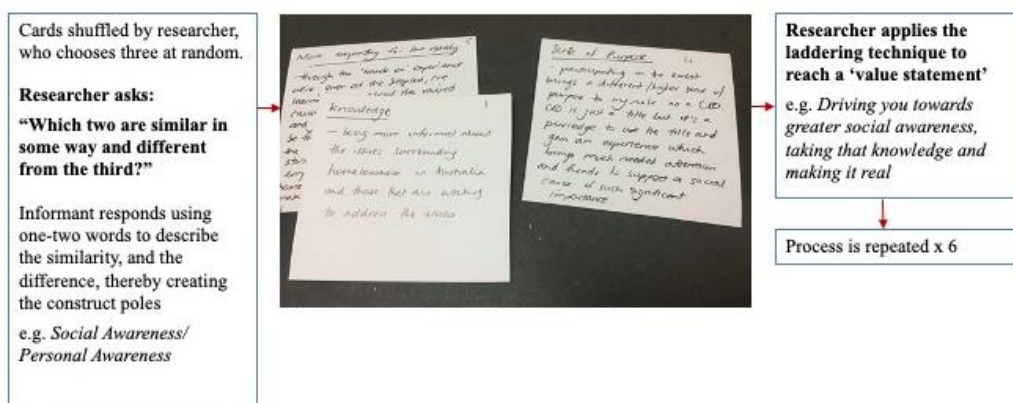 Cards shuffled by researcher,
who chooses three at random.
Researcher asks:
“Which two are similar in
some way and different
from the third?”
Informant responds using
one-two words to describe
the similarity, and the
difference, thereby creating
the construct poles
e.g. Social Awareness/
Personal Awareness
through the 'hands on' experience
Knowledge
- being more informed about
the issues surrounding
homelessness in Australia
and those that are working
to address the issues
Sense of Purpose
- participating in the event
brings a different/higher sense of
purpose to my role as a CEO.
CEO is just a title but it's a
privilege to use the title and
gain an experience which
brings much needed attention
and funds to support a social
cause of such significant
importance
Researcher applies the
laddering technique to
reach a ‘value statement’
e.g. Driving you towards
greater social awareness,
taking that knowledge and
making it real
Process is repeated x 6